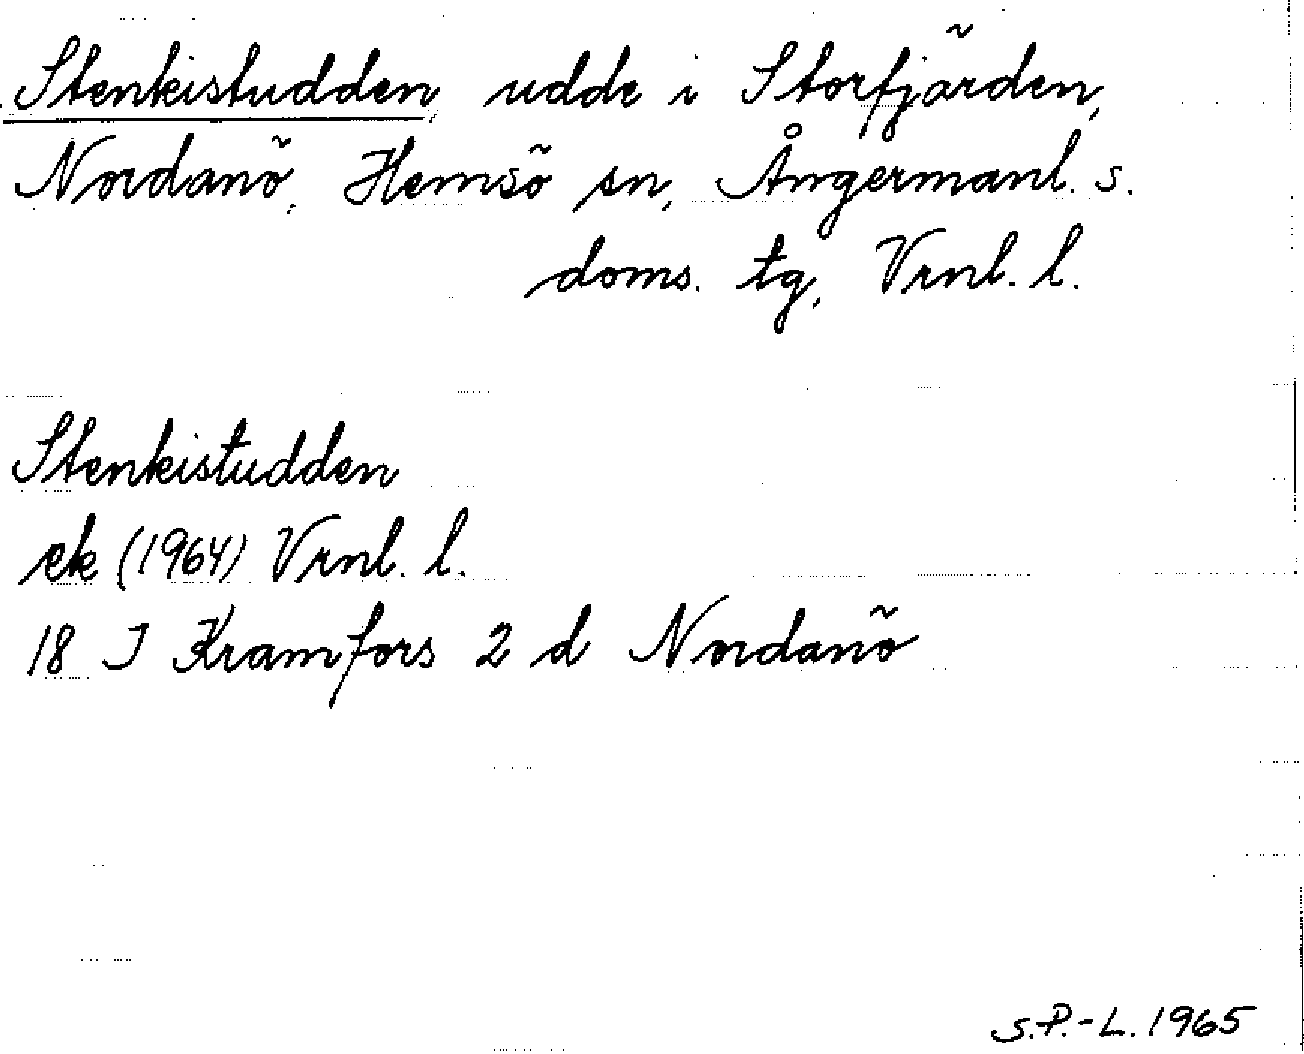 Stenkistudden, udde i Storfjärden,
Nordanö, Hemsö sn, Ångermanl. s.
doms. tg, Vrnl. l.
Stenkistudden
ek (1964) Vrnl. l.
18 I Kramfors 2 d Nordanö
S.P.-L. 1965